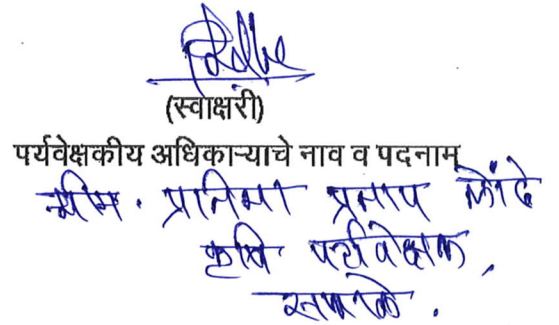 (स्वाक्षरी)
पर्यवेक्षकीय अधिकाऱ्याचे नाव व पदनाम
प्रतिमा प्रताप लोंढे
कृषि पर्यवेक्षक,